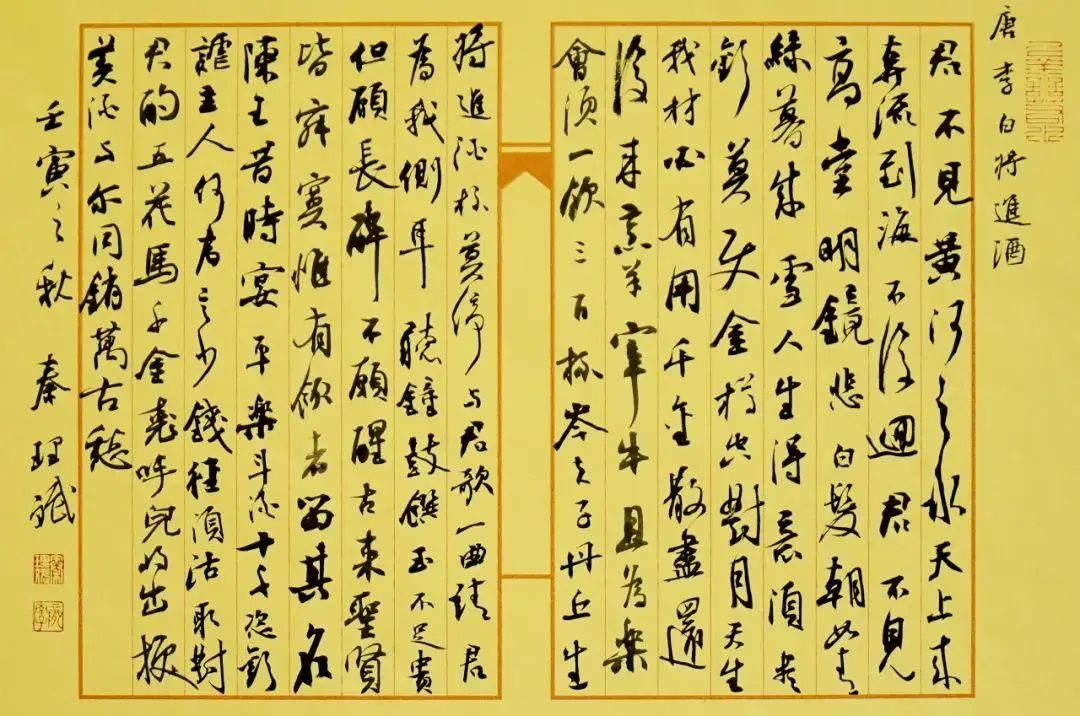 唐李白將進酒
君不見黃河之水天上來
奔流到海不復迴君不見
高堂明鏡悲白髮朝如青
絲暮成雪人生得意須盡
歡莫使金樽空對月天生
我材必有用千金散盡還
復來烹羊宰牛且為樂
會須一飲三百杯岑夫子丹丘生
將進酒杯莫停与君歌一曲請君
為我側耳聽鐘鼓饌玉不足貴
但願長醉不願醒古來聖賢
皆寂寞惟有飲者留其名
陳王昔時宴平樂斗酒十千恣歡
謔主人何為言少錢徑須沽取對
君酌五花馬千金裘呼兒將出換
美酒与尔同銷萬古愁
壬寅之秋 秦理斌